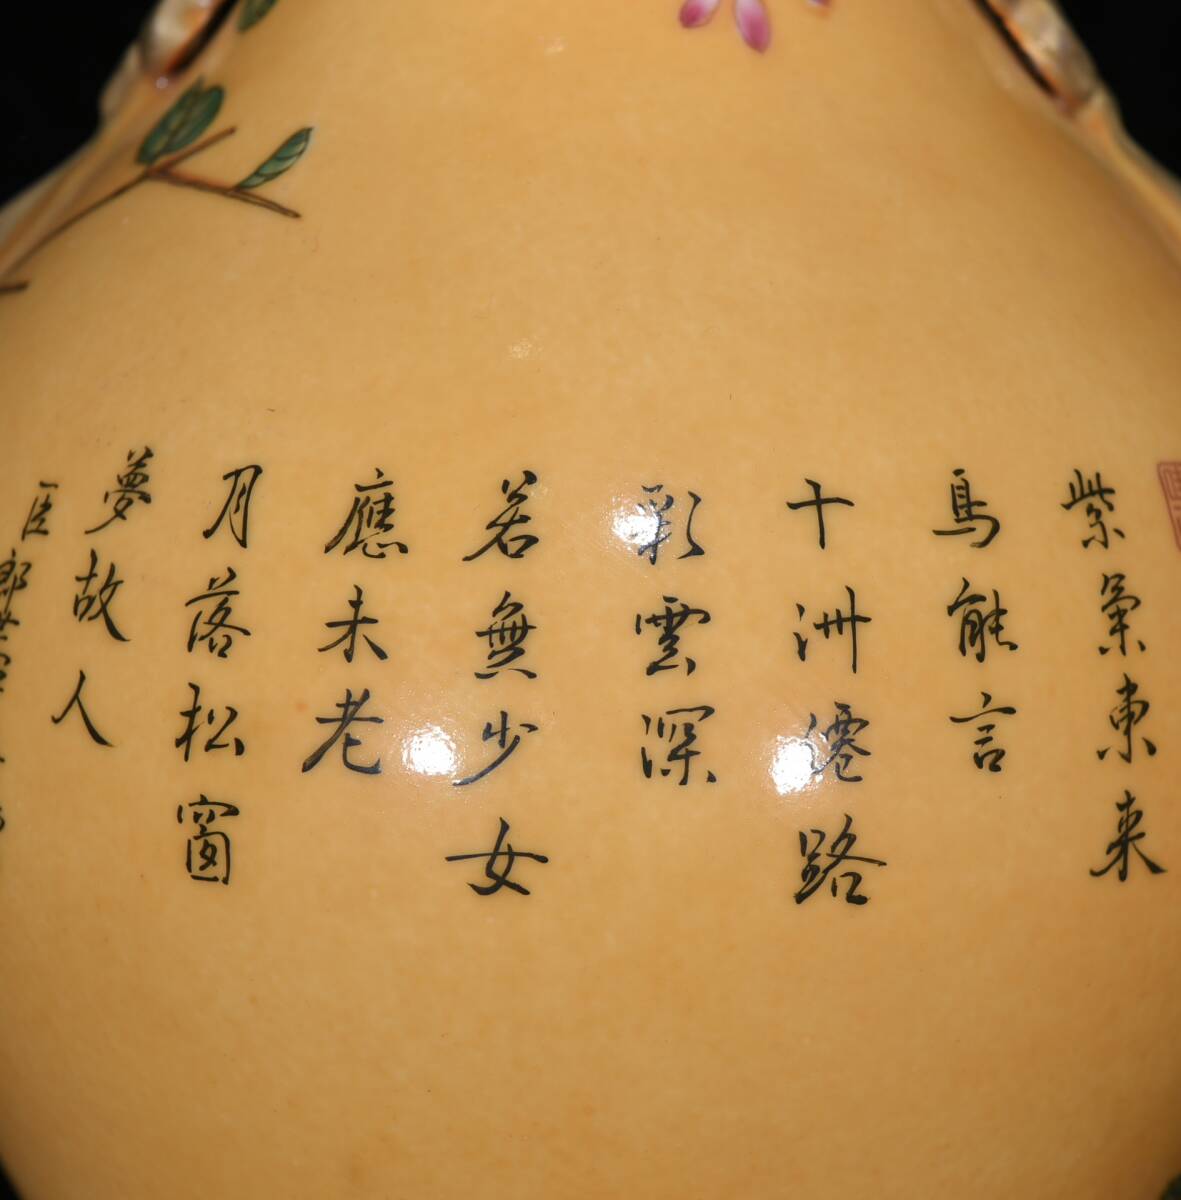 紫氣東来
鳥能言
十洲僊路
彩雲深
若無少女
應未老
月落松窗
夢故人
臣郎世寧